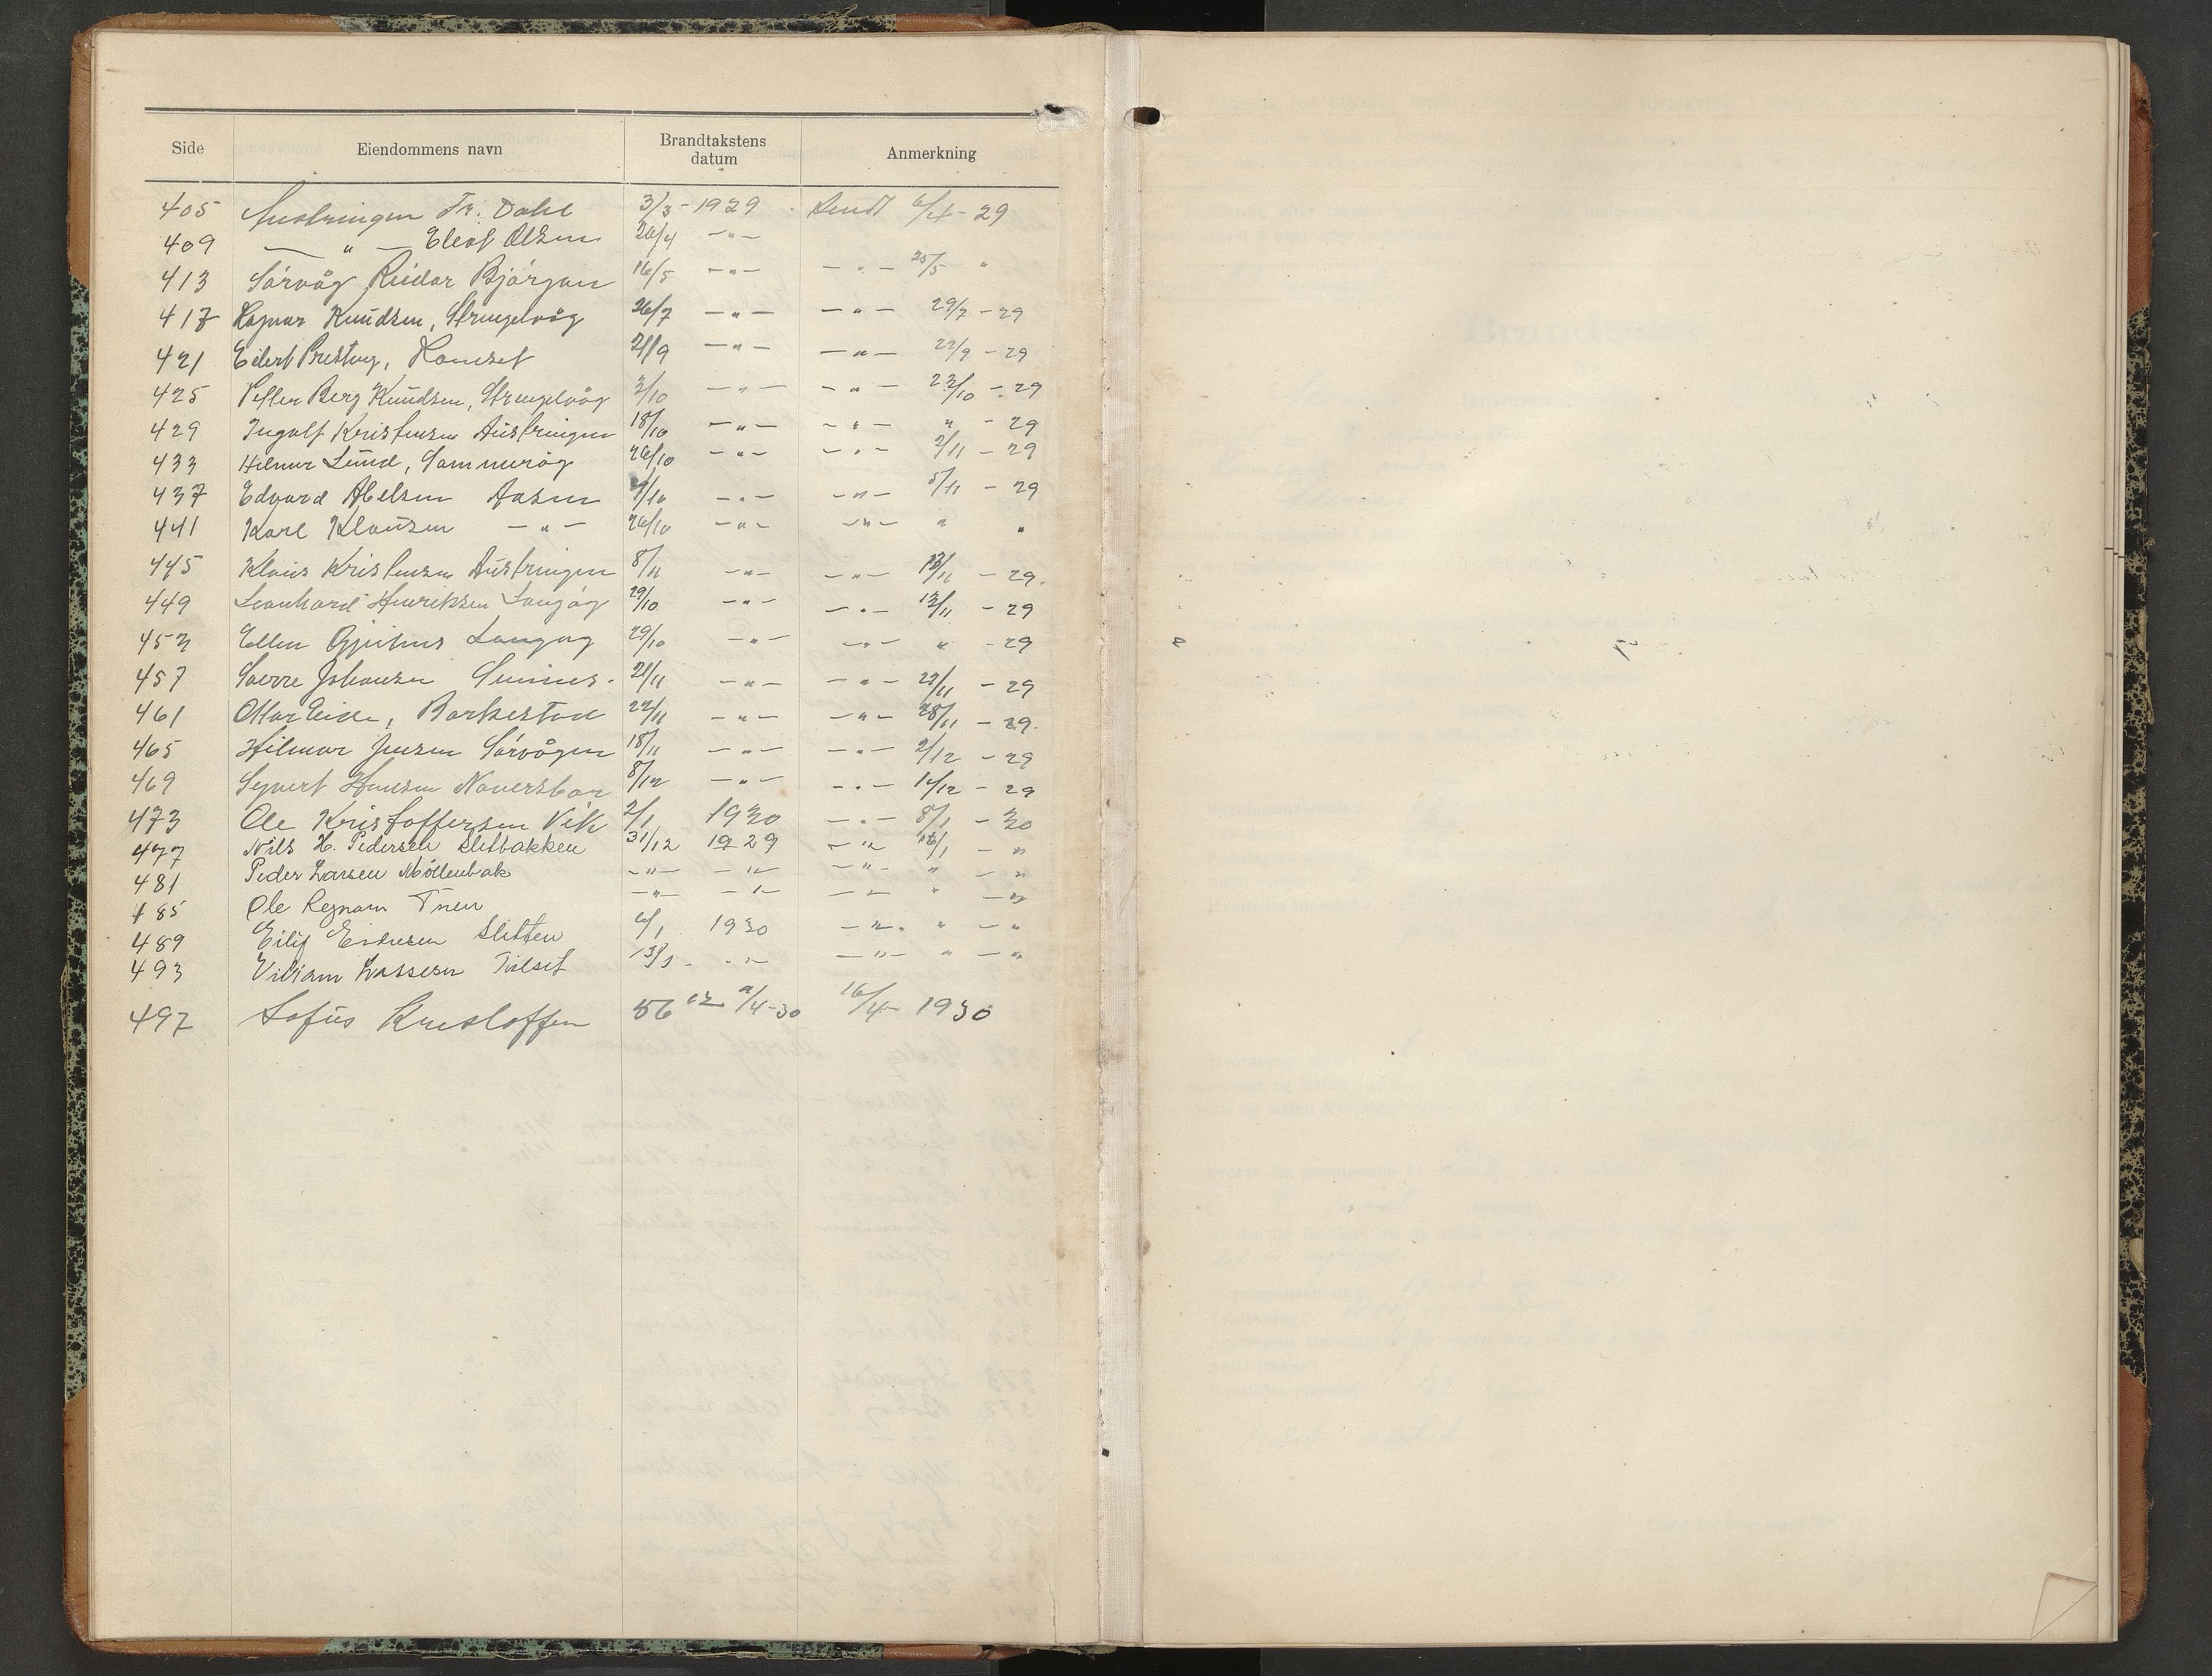 Side Eiendommens navn Brandtakstens datum Anmerkning
405 Austringen Fr. Dahl 3/3-1929 Sendt 6/4-29
409 — " — Olsen 20/4 -"-
413 Sørvåg Reidar Bjørgan 16/5 -"- -"- 25/5 "
417 Ragnar Knudsen, Strengelvåg 26/7 -"- -"- 29/7-29
421 Eilert Presteng, Ramset 21/9 -"- -"- 22/9-29
425 Petter Berg Knudsen, Strengelvåg 3/10 -"- -"- 23/10-29
429 Ingolf Kristensen Austringen 18/10 -"- -"- " -29
433 Hilmar Lund, 26/10 -"- -"- 2/11-29
437 Edvard Abelsen Aasen /10 -"- -"- 5/11-29
441 Karl Klausen -"- 26/10 -"- -"- " "
445 Klaus Kristensen Austringen 8/11 -"- -"- 13/11-29.
449 Leonhard Henriksen 29/10 -"- -"- 13/11-29
453 Ellen 29/10 -"- -"- " -29
457 Sverre Johansen 21/11 -"- -"- 22/11-29
461 Barkestad 22/11 -"- -"- 28/11-29.
465 Hilmar Jensen Sørvågen 18/11 -"- -"- 2/12-29
469 Severt Hansen 8/12 -"- -"- /12-29
473 Ole Kristoffersen Vik 2/1 1930 -"- 8/1-30
477 Nils H. Pedersen Sletbakken 31/12 1929 -"- /1 - "
481 Peder Larsen Möllenbak -"- -"- -"- " - "
485 Ole Tnen -"- -"- -"- " - "
489 Eilif Slitten 6/1 1930 -"- " - "
493 Viliam Lassesen 13/1 -"- -"- " - "
497 Sofus /4-30 16/4-1930